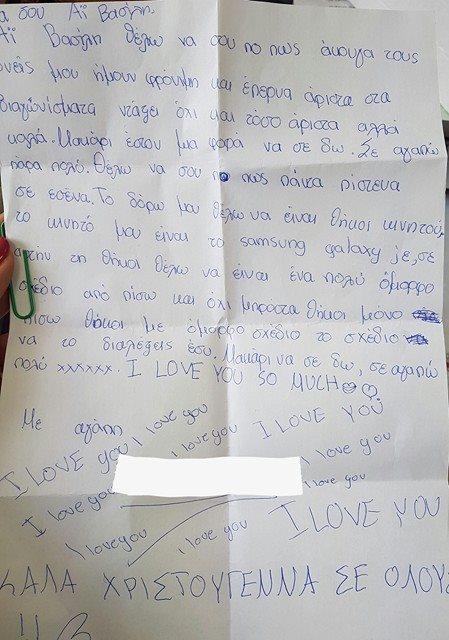 α σου Αϊ Βασίλη.
Αϊ Βασίλη θέλω να σου πο πως άκουγα τους
ονείς μου ήμουν φρόνημη και έπερνα άριστα στα
διαγωνίσματα νταξει όχι και τόσο άριστα αλλά
καλά. Μακάρι έστου μια φορά να σε δω. Σε αγαπώ
πάρα πολύ. Θέλω να σου πο πως πάντα πίστευα
σε εσένα. Το δόρω μου θέλω να είναι θήκοι κινητού,
το κινητό μου είναι το samsung galaxy je, σε
αυτήν τη θήκοι θέλω να είναι ένα πολύ όμορφο
σχέδιο από πίσω και όχι μπρόστα θήκοι μόνο
πίσω θήκοι με όμορφο σχέδιο το σχέδιο
να το διαλέξεις έσυ. Μακάρι να σε δω, σε αγαπώ
πολύ xxxxxx. I LOVE YOU SO MUCH
Με αγάπη
I LOVE YOU I love you I love you I LOVE YOU
I love you I love you I love you
I love you I love you I love you I LOVE YOU
ΚΑΛΑ ΧΡΙΣΤΟΥΓΕΝΝΑ ΣΕ ΟΛΟΥΣ
!!